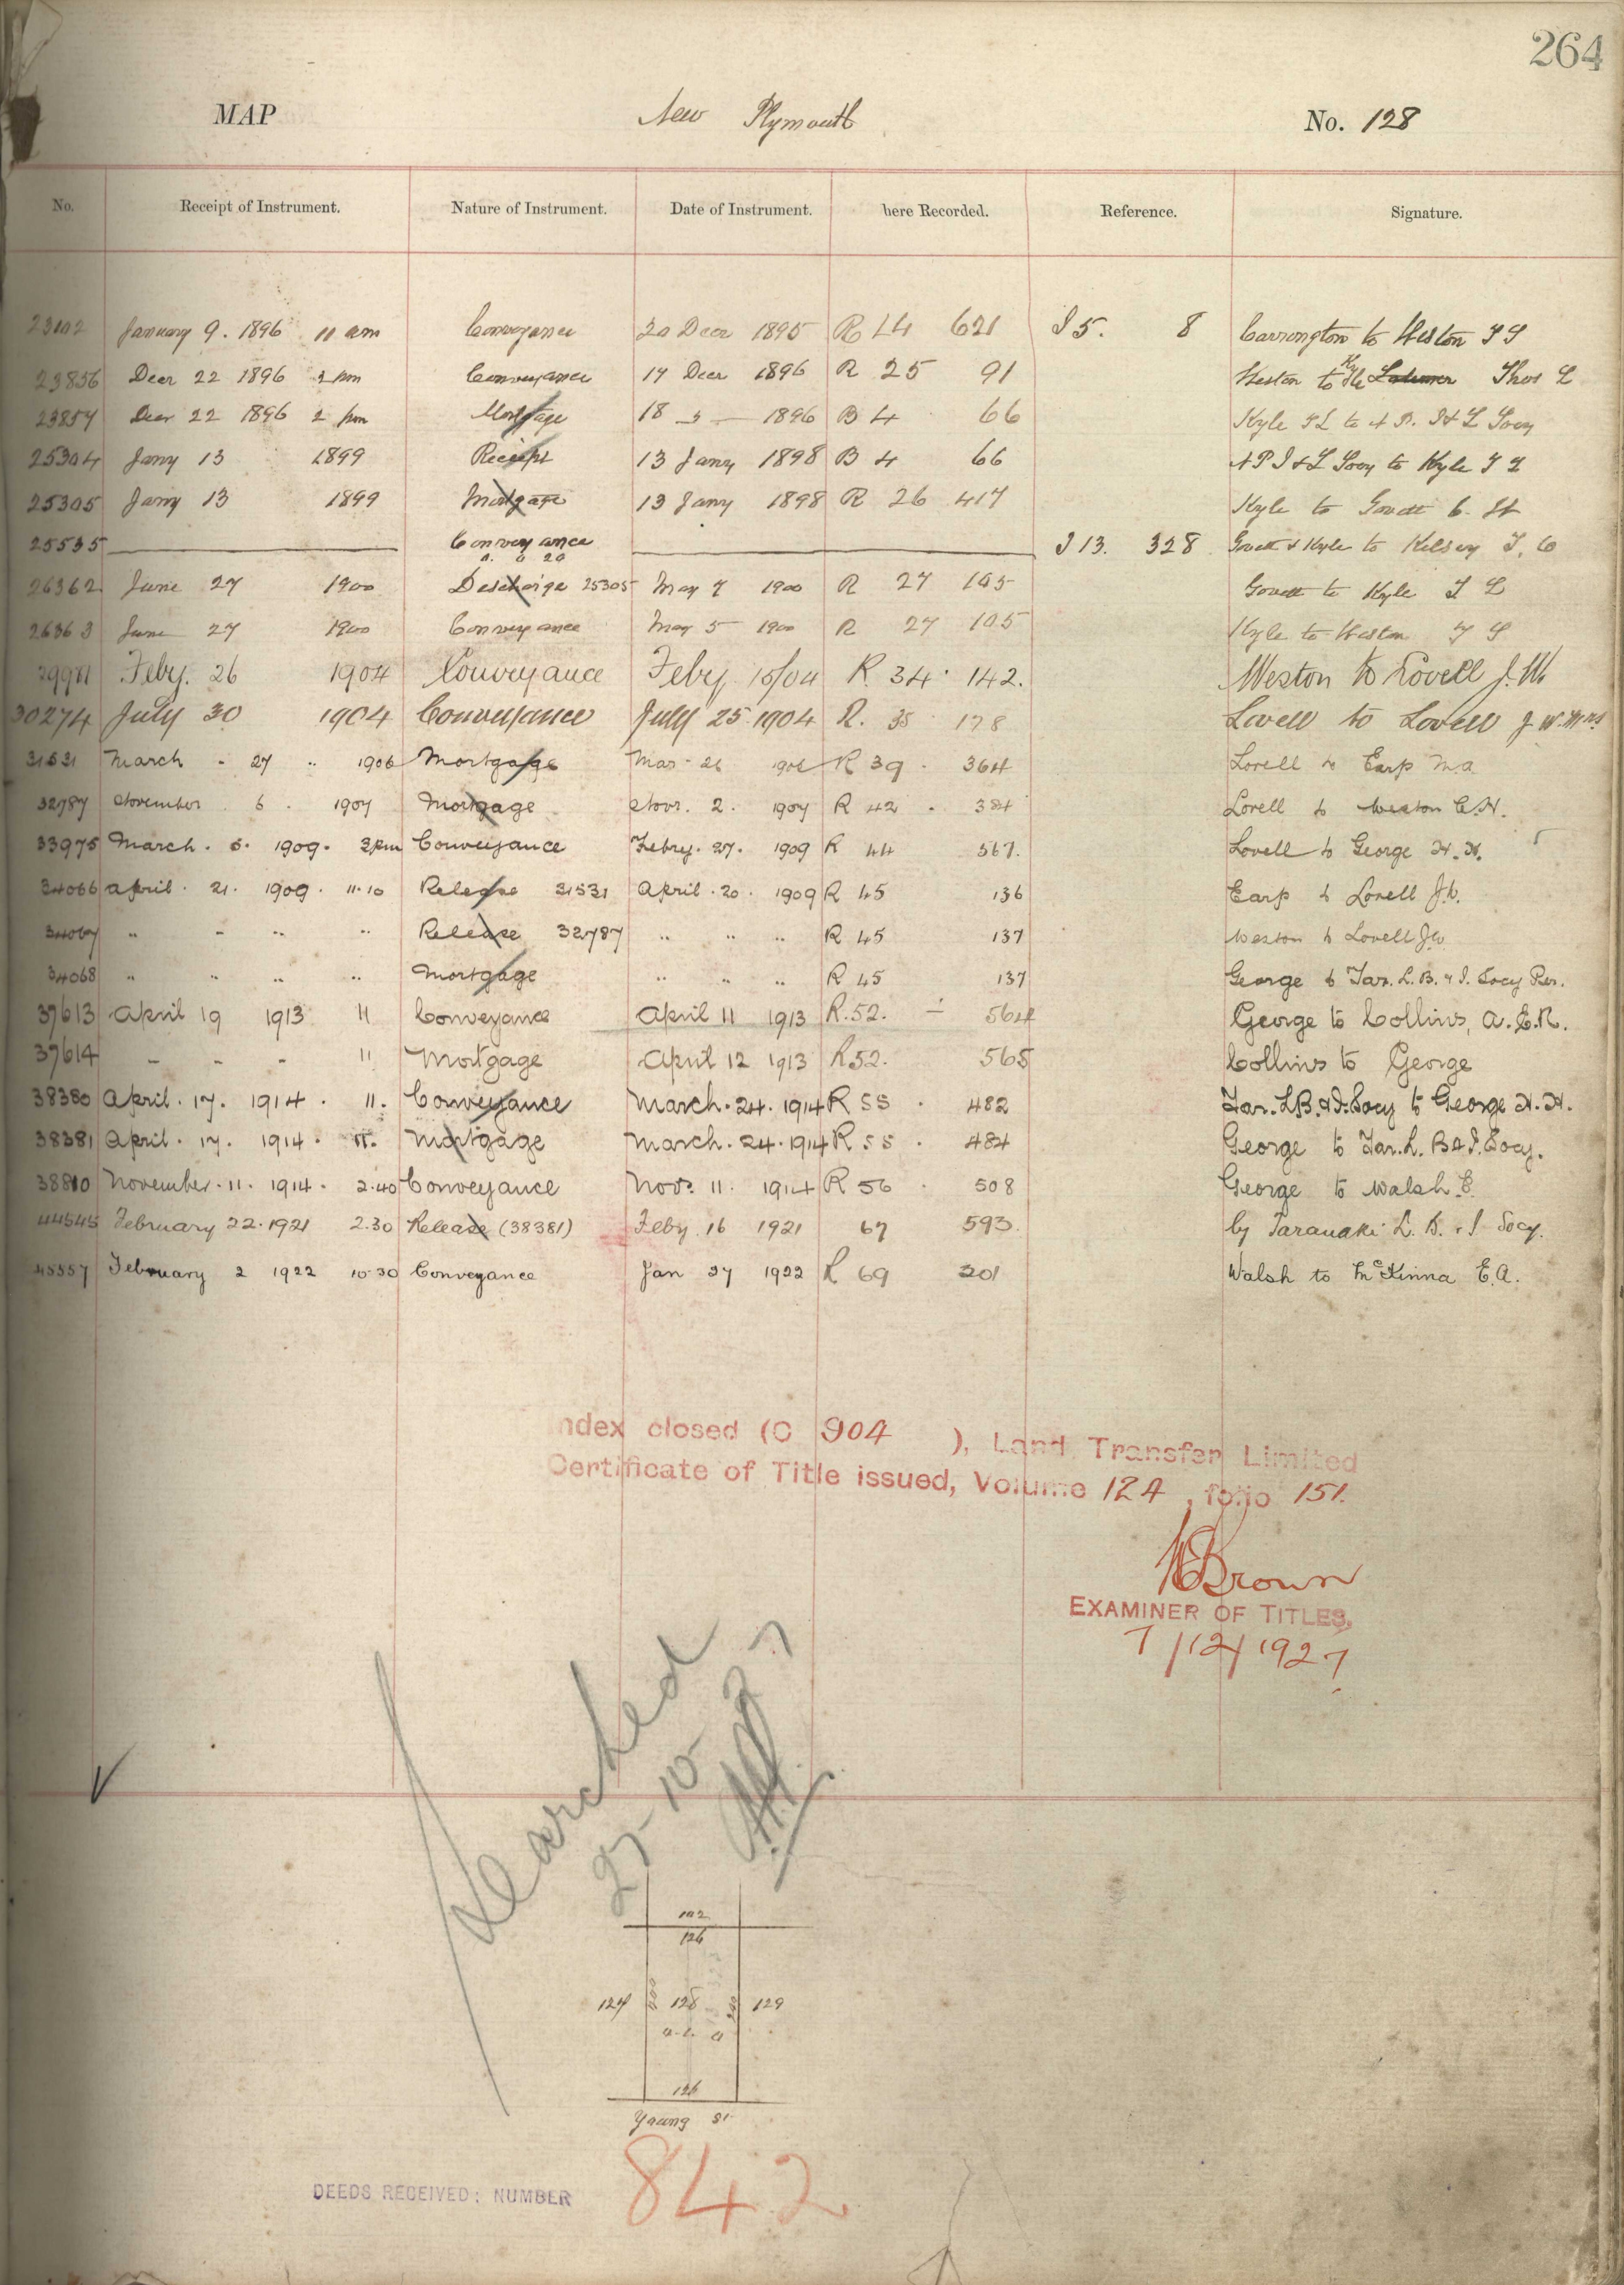 264
MAP New Plymouth No. 128
No. Receipt of Instrument. Nature of Instrument. Date of Instrument. here Recorded. Reference. Signature.
23102 January 9. 1896 11 am Conveyance 20 Decr 1895 R 14 621 I 5. 8 Carrington to Weston T S
23856 Decr 22 1896 2 pm Conveyance 17 Decr 1896 R 25 91 Weston to Kyle Thos L
23857 Decr 22 1896 2 pm Mortgage 18 1896 B 4 66 Kyle T L to
25304 Jany 13 1899 Receipt 13 Jany 1898 B 4 66 to Kyle T L
25305 Jany 13 1899 Mortgage 13 Jany 1898 R 26 417 Kyle to Govett C. H
25535 Conveyance I 13. 328 Govett & Kyle to Kelsey T. C
0. 0 20
26362 June 27 1900 Discharge 25305 May 7 1900 R 27 105 Govett to Kyle T L
26363 June 27 1900 Conveyance May 5 1900 R 27 105 Kyle to Weston T S
29971 Feby. 26 1904 Conveyance Feby 15/04 R. 34 142. Weston to Lovell J. W.
30274 July 30 1904 Conveyance July 25 1904 R. 35 178 Lovell to Lovell J W. Mrs
31531 March 27 1906 Mortgage Mar 26 1906 R 39 364 Lovell to Earp M.A
32787 November 6 1907 Mortgage Novr. 2. 1907 R 42 384 Lovell to Weston C.H.
33975 March. 5. 1909. 3pm Conveyance Febry. 27. 1909 R 44 567. Lovell to George H. H.
34066 April. 21. 1909. 11.10 Release 31531 April. 20. 1909 R 45 136 Earp to Lovell J.W.
34067 " " " " Release 32787 " " " R 45 137 Weston to Lovell J.W
34068 " " " " Mortgage " " " R 45 137 George to Tar. L. B. & I. Socy Per.
37613 April 19 1913 11 Conveyance April 11 1913 R. 52. 564 George to Collins, A. E. R.
37614 - - - 11 Mortgage April 12 1913 R 52. 565 Collins to George
38380 April. 17. 1914. 11. Conveyance March. 24. 1914 R 55 . 482 Tar. L. B. & I. Socy to George H. H.
38381 April. 17. 1914. 11. Mortgage March. 24. 1914 R 55 . 484 George to Tar. L. B & I. Socy.
38810 November. 11. 1914. 2.40 Conveyance Nov. 11. 1914 R 56 . 508 George to Walsh E.
44545 February 22. 1921 2.30 Release (38381) Feby 16 1921 67 593. by Taranaki L. B. & I Socy.
45557 February 2 1922 10.30 Conveyance Jan 27 1922 R 69 201 Walsh to McKinna E.A.
ndex closed (C 904 ), Land Transfer Limited
Certificate of Title issued, Volume 124, folio 151.
Brown
EXAMINER OF TITLES.
7/12/1927
Searched
27-10-27
102
126
127 128 129
126
Young St
DEEDS RECEIVED: NUMBER 842